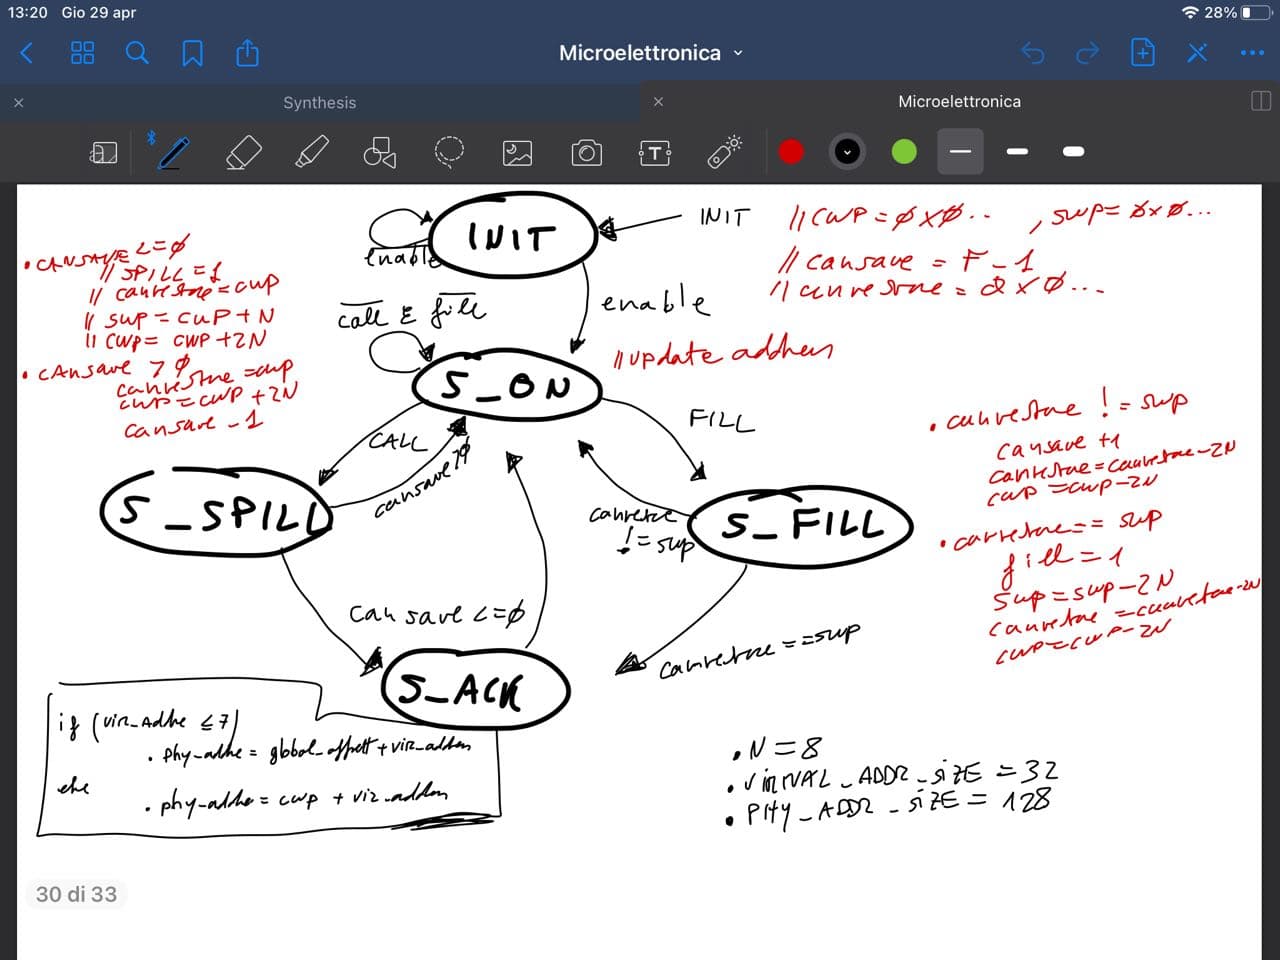 13:20 Gio 29 apr
28%
Microelettronica
Synthesis
Microelettronica
INIT
INIT
// cwp = ØxØ.. , swp = ØxØ...
// cansave = F - 1
// canrestore = ØxØ...
enable
enable
• CANSAVE <= Ø
// SPILL = 1
// canrestore = cwp
// swp = cwp + N
// cwp = cwp + 2N
• CANsave > Ø
canrestore = cwp
cwp = cwp + 2N
cansave - 1
call E fill
S_ON
// update address
CALL
cansave > Ø
FILL
canrestore
!= swp
S_SPILL
S_FILL
• canrestore != swp
cansave +1
canrestore = canrestore - 2N
cwp = cwp - 2N
• canrestore == swp
fill = 1
swp = swp - 2N
canrestore = canrestore - 2N
cwp = cwp - 2N
cansave <= Ø
canrestore == swp
S_ACK
if (vir_Addre ≤ 7)
• Phy_addre = global_offsett + vir_addre
else
• phy_addre = cwp + vir_addre
• N = 8
• VIRTUAL_ADDR_SIZE = 32
• PHY_ADDR_SIZE = 128
30 di 33